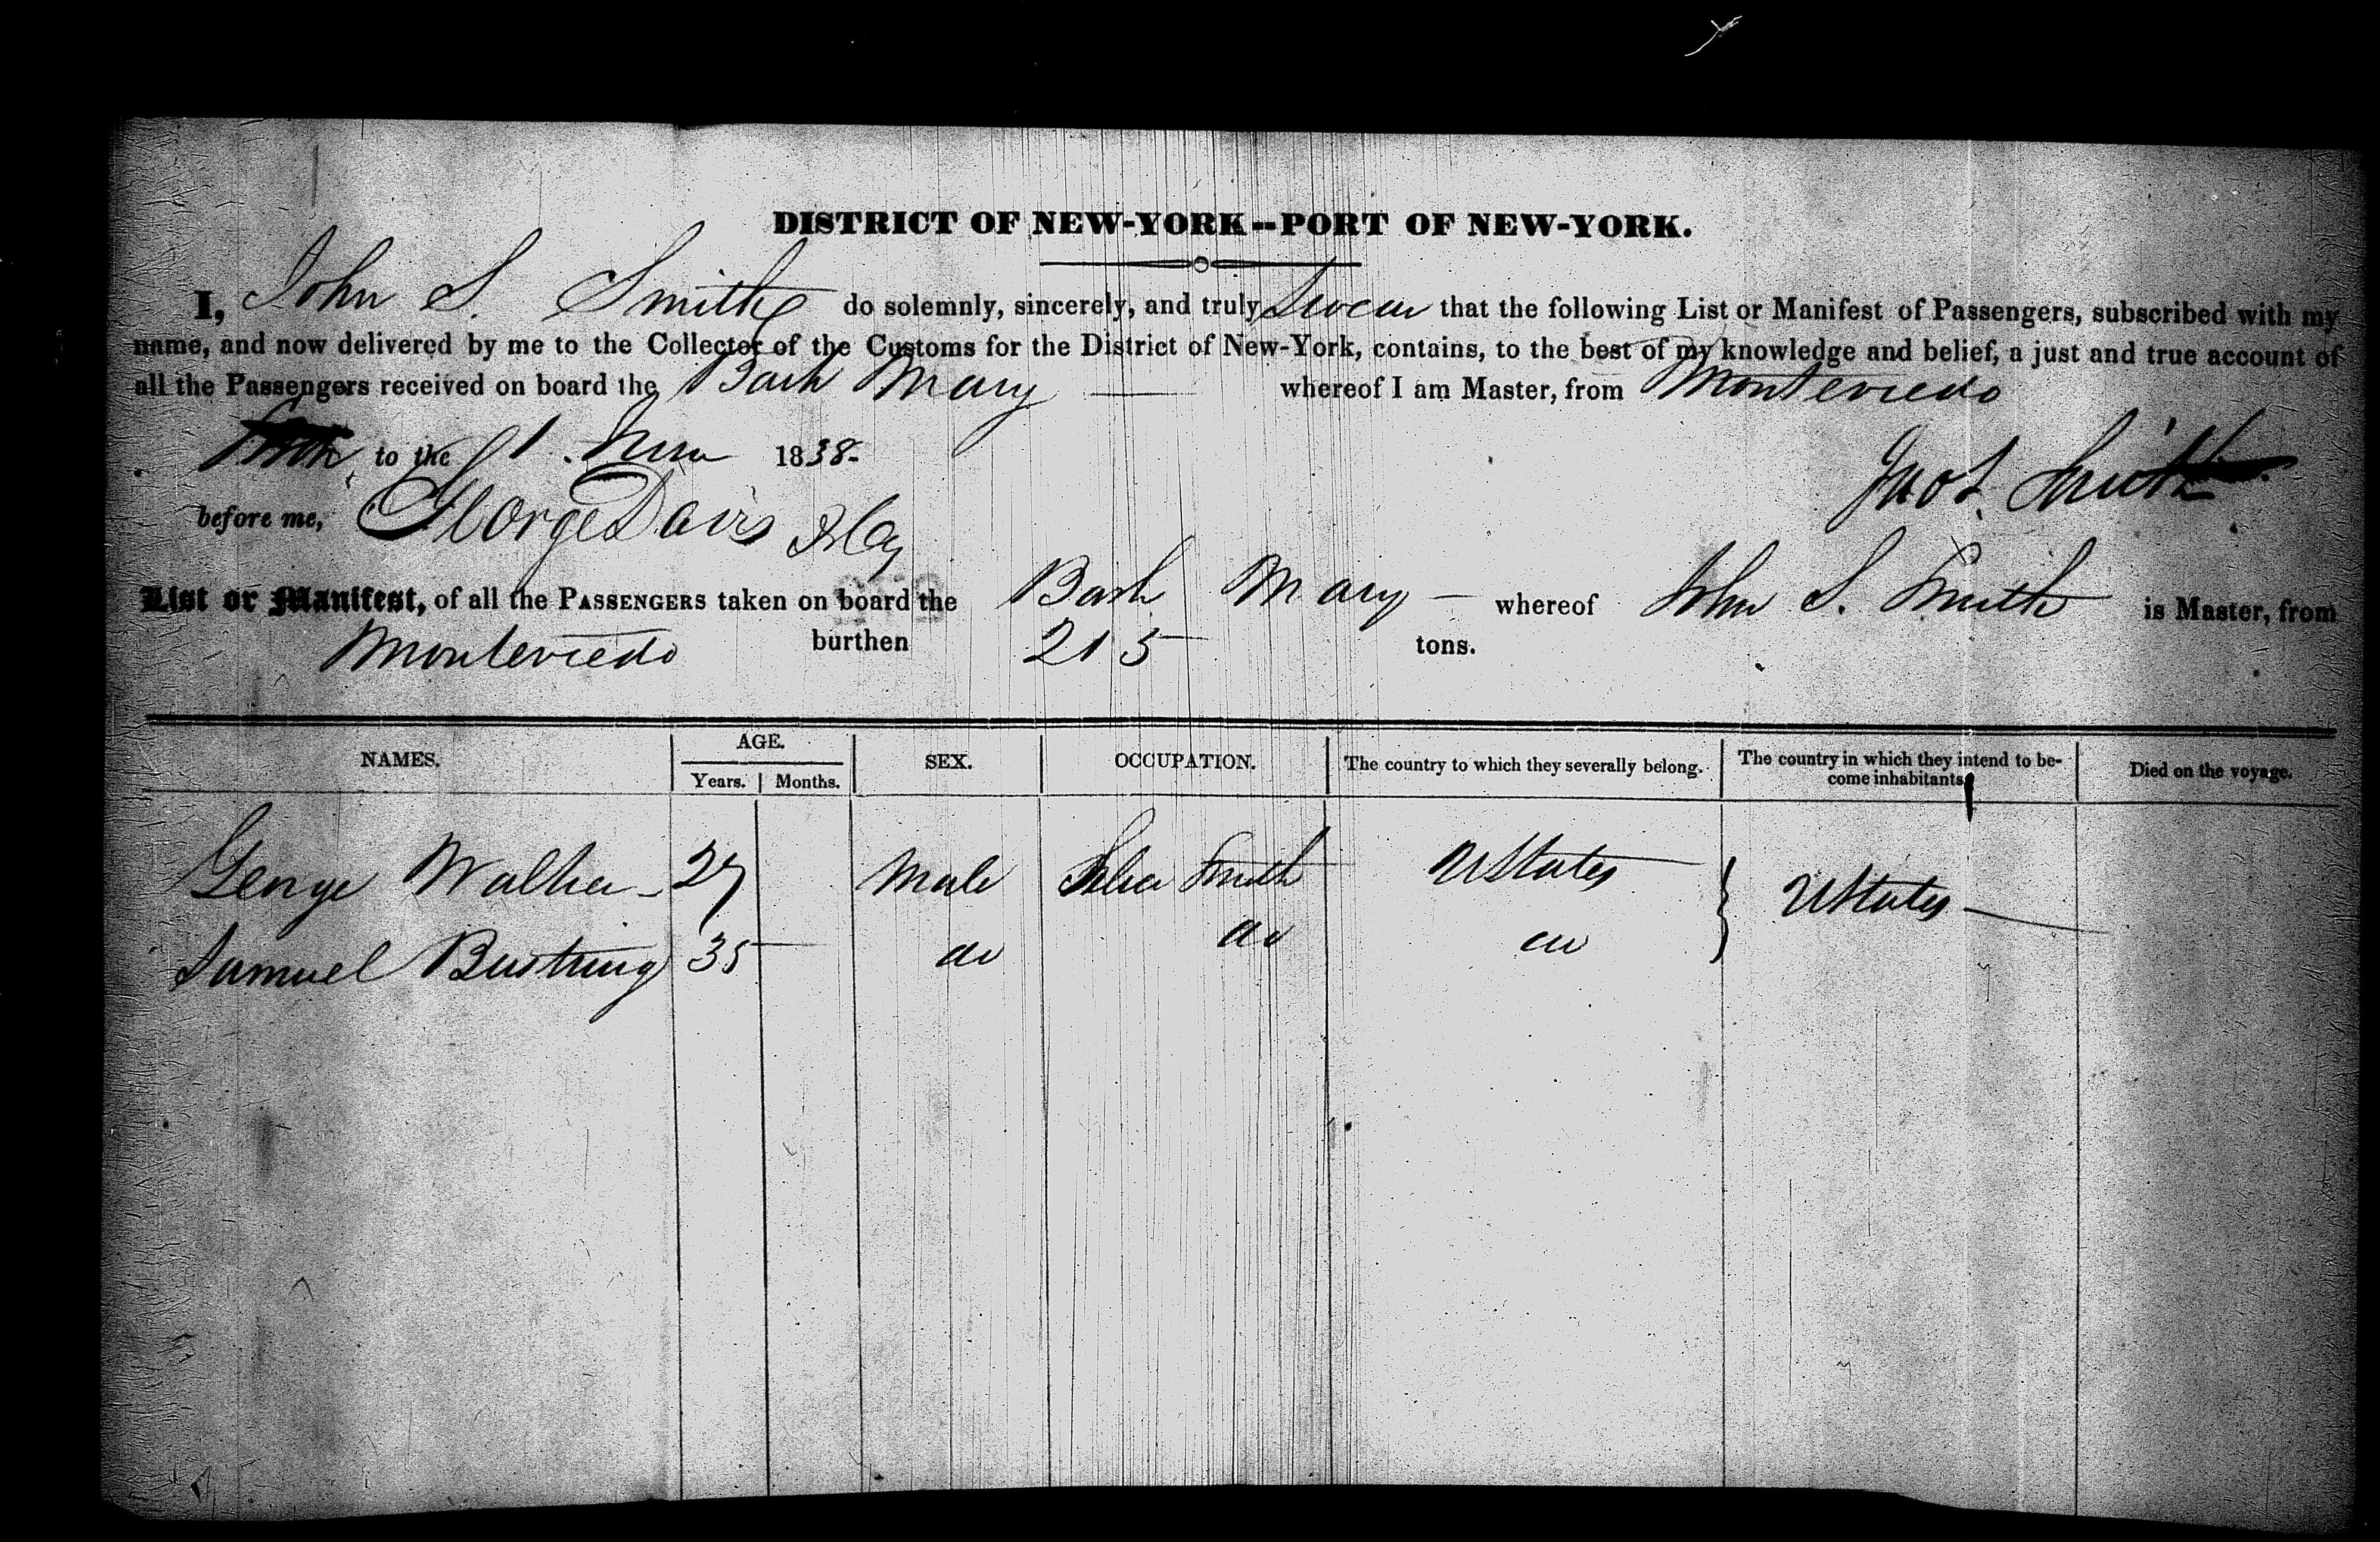 DISTRICT OF NEW-YORK--PORT OF NEW-YORK.
I, John S. Smith do solemnly, sincerely, and truly Swear that the following List or Manifest of Passengers, subscribed with my
name, and now delivered by me to the Collector of the Customs for the District of New-York, contains, to the best of my knowledge and belief, a just and true account of
all the Passengers received on board the Bark Mary whereof I am Master, from Monteviedo
to the 1 June 1838.
Jno S. Smith
before me, George Davis
List or Manifest, of all the PASSENGERS taken on board the Bark Mary — whereof John S. Smith is Master, from
Monteviedo burthen 215 tons.
NAMES. AGE. Years. Months. SEX. OCCUPATION. The country to which they severally belong. The country in which they intend to be-
come inhabitants. Died on the voyage.
George Walker 27 Male Silver Smith UStates } UStates
Samuel 35 do do do